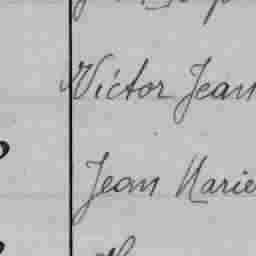 Victor Jean
Jean Marie